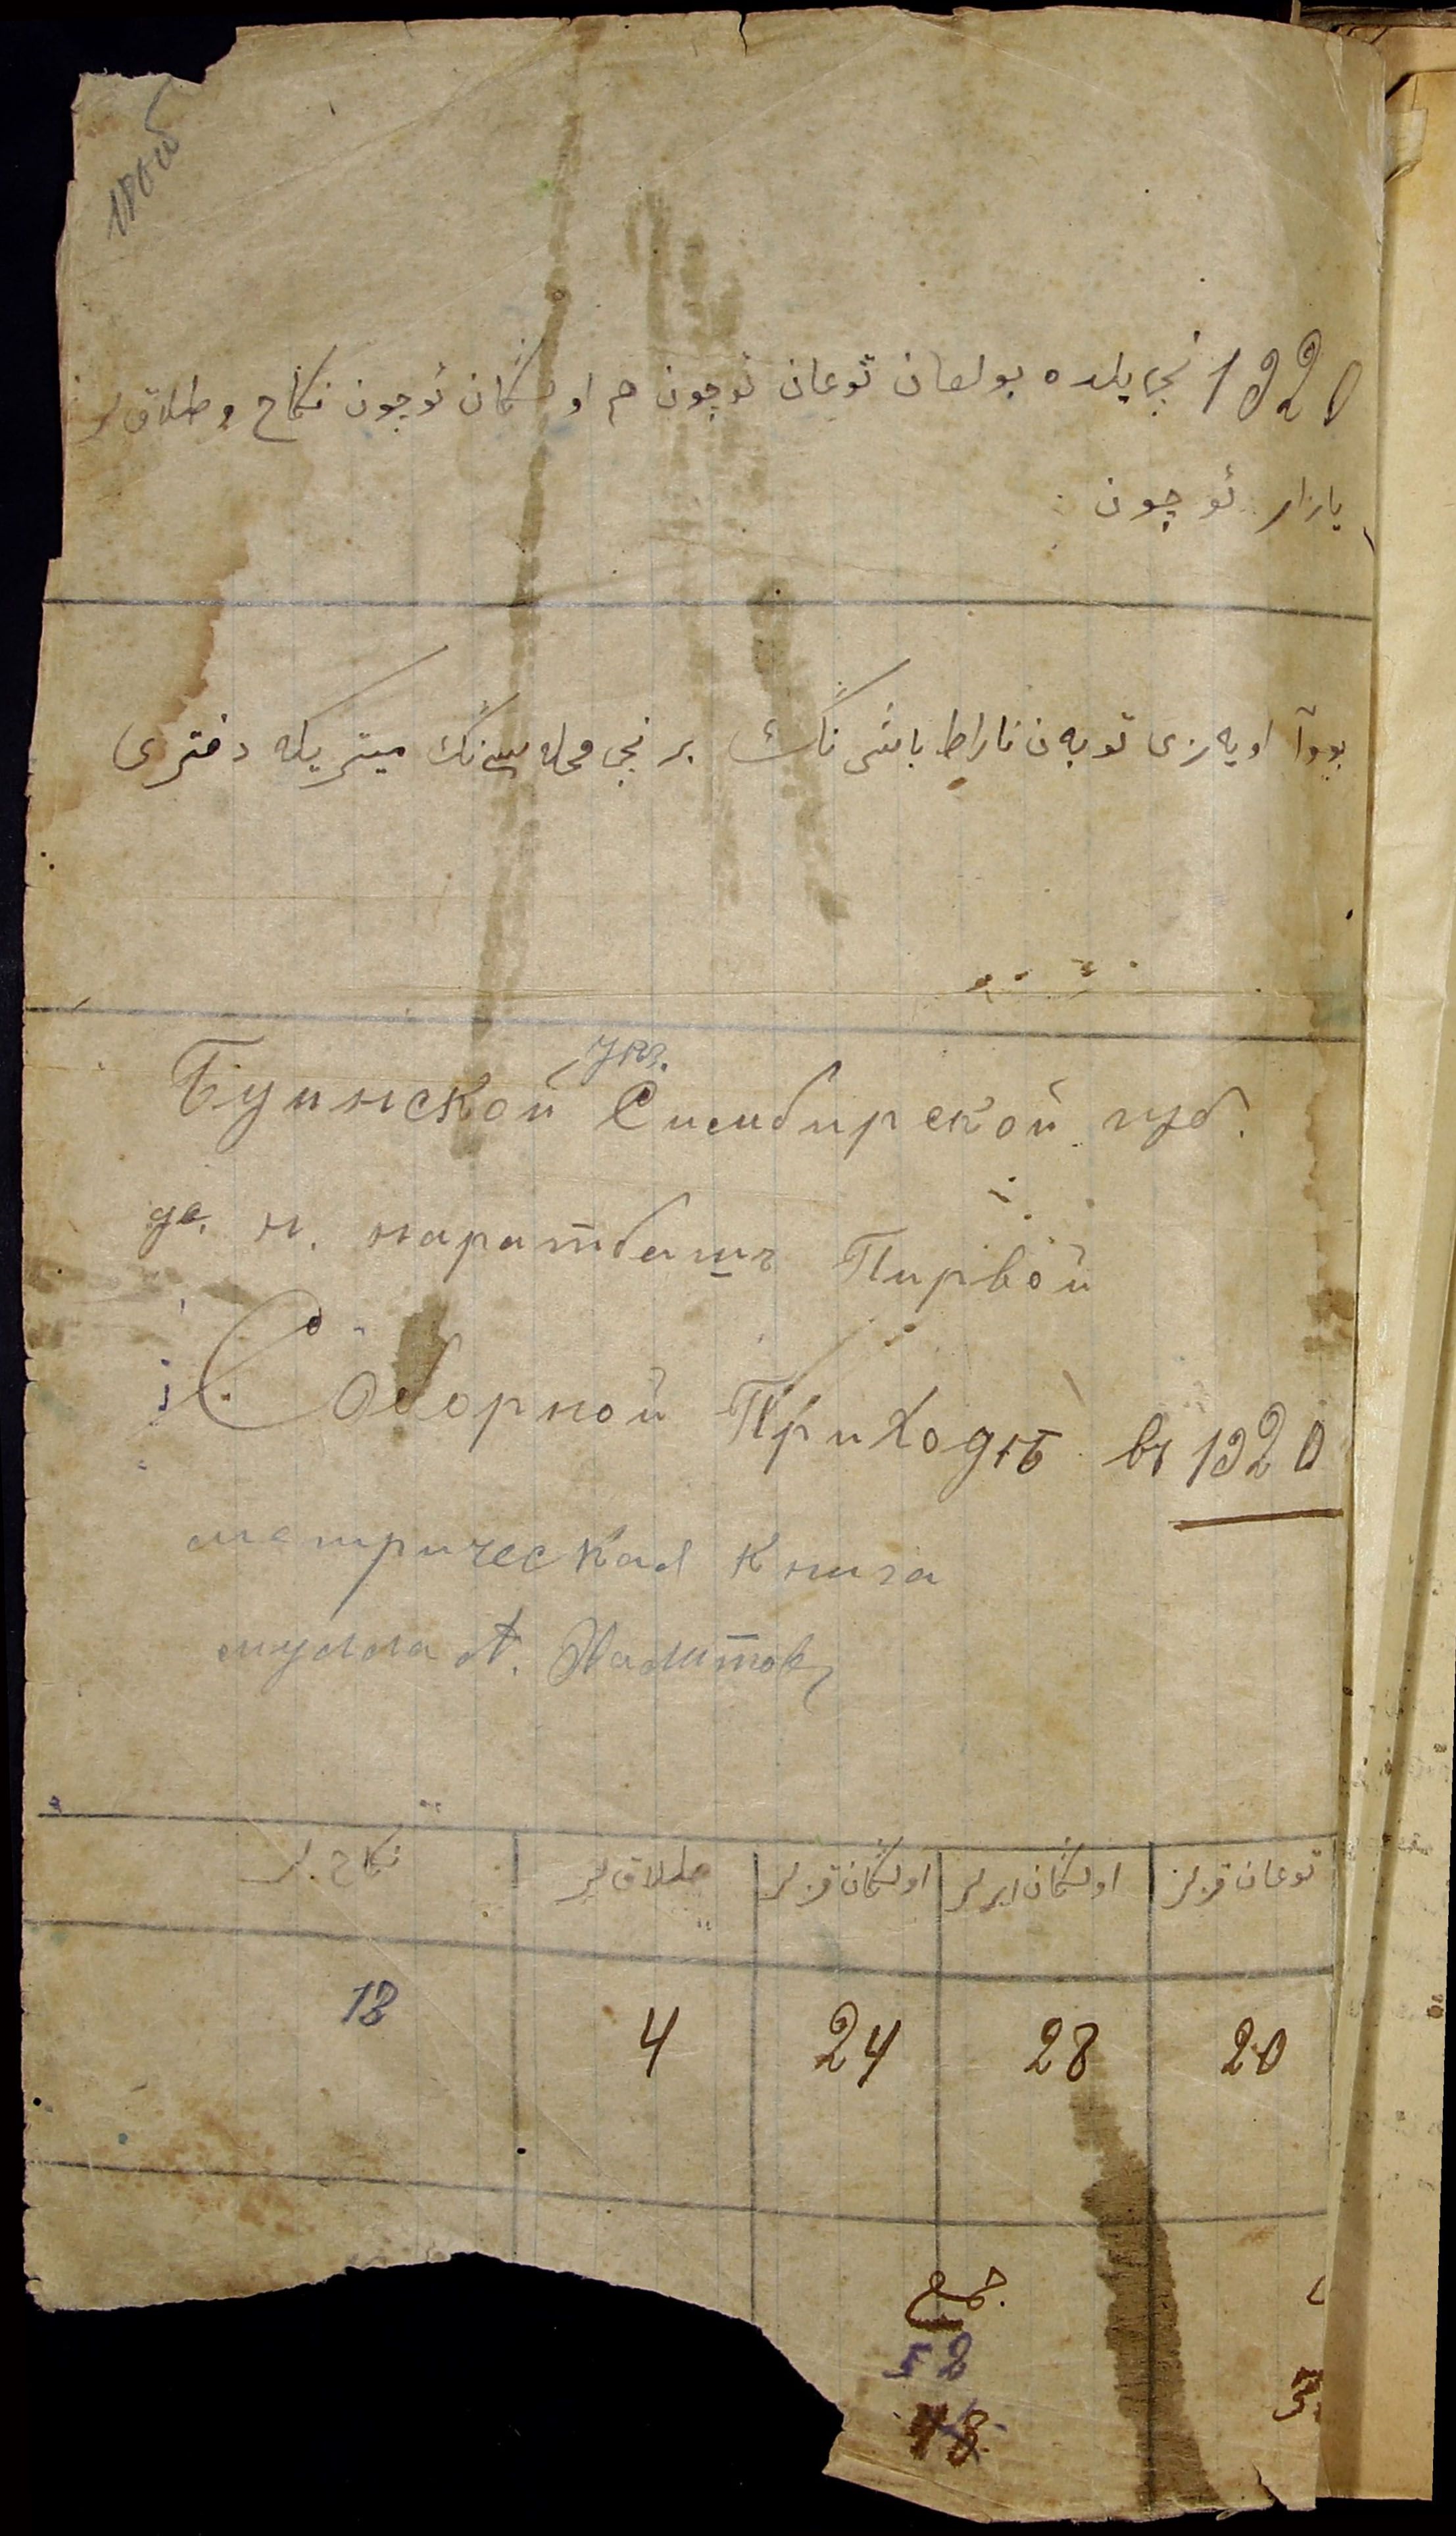 180об
1920 نچی یلده بولغان توغان ئوچون هم اولگان ئوچون نکاح و طلاق لر
یازار ئوچون
بووآ اویه زی توبه ن ناراط باشی نڭ برنچی محله سی نڭ میتریکه دفتری
Буинской уез. Симбирской губ.
де. н. наратбашъ Пирвой
Соборной Приходѣ въ 1920
метрическая книга
мулла А. Халитовъ
توغان قزلر اولگان ایرلر اولگان قزلر طلاق لر نکاح لر
20 28 24 4 18
جمع
52
48